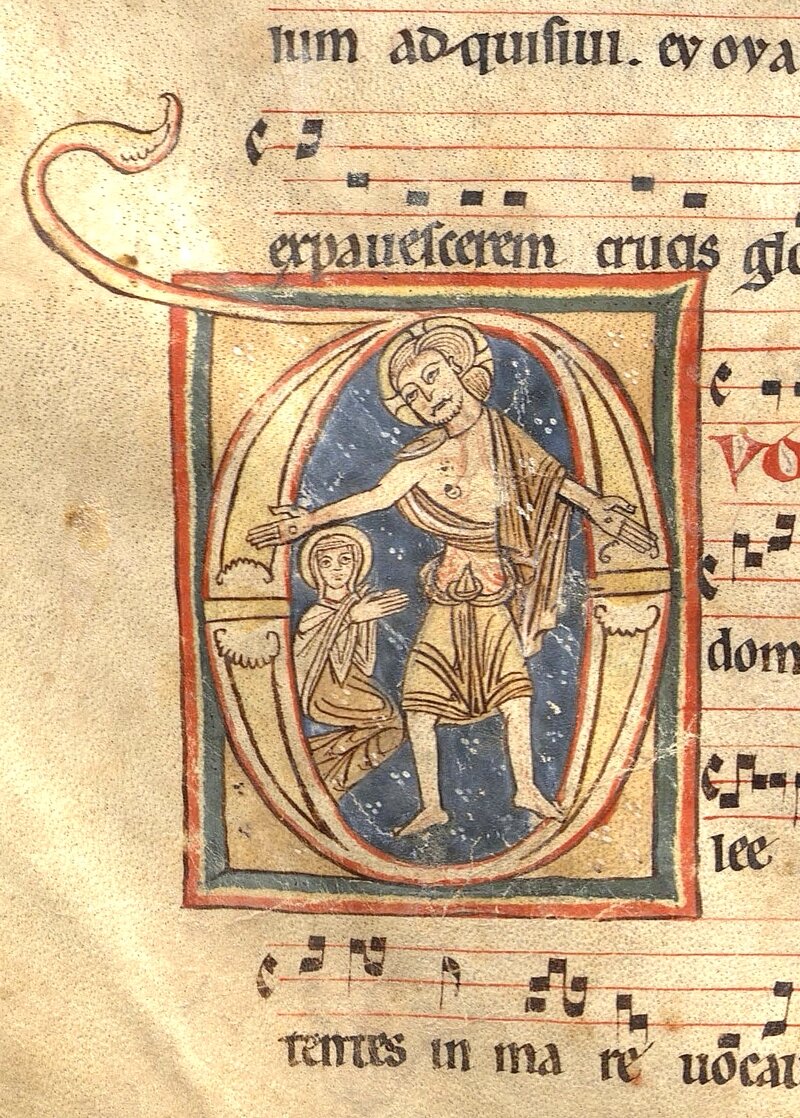 lum adquisiui. evova
expauescerem crucis glo
VO
D
dom
lee
tentes in ma re uocau